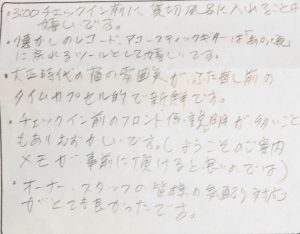 ・3:00チェックイン前に、貸切風呂に入れることも
嬉しいです。
・懐かしのレコード、アコースティックギターは「あの頃」
に戻れるツールとして嬉しいです。
・大正時代の宿の雰囲気が、
タイムカプセル的で新鮮です。
・チェックイン前のフロント係説明が多いことも
ありもおかしいです。(ようこそのご案内
メモが事前に頂けると良いのでは)
・オーナー、スタッフの皆様の気配り対応
がとても良かったです。